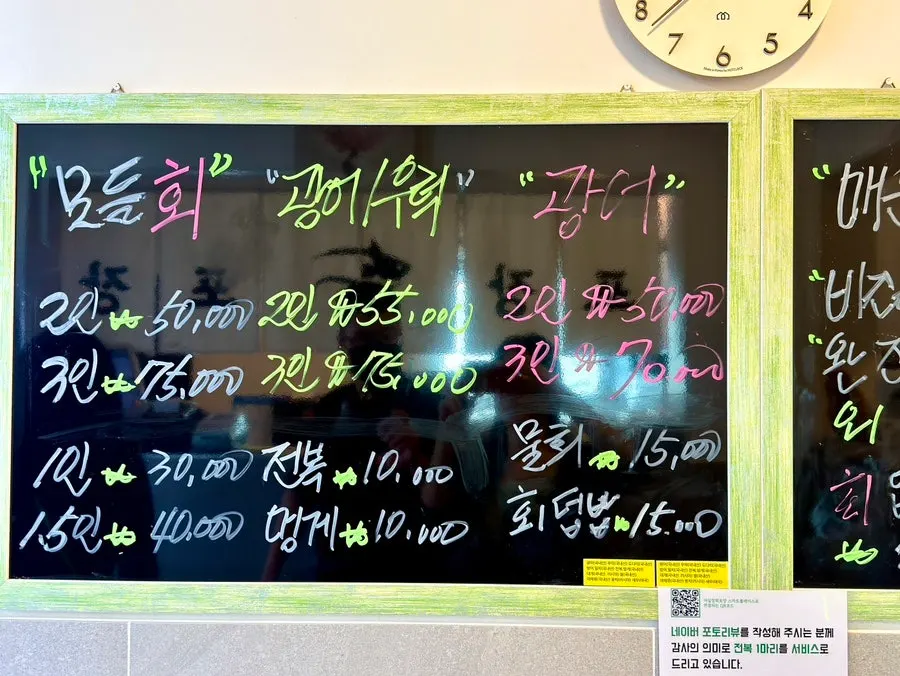 8
4
7
6
5
"모듬회"
2인 ₩ 50,000
3인 ₩ 75,000
1인 ₩ 30,000
1.5인 ₩ 40.000
"광어/우럭"
2인 ₩ 55.000
3인 ₩ 75.000
전복 ₩ 10.000
멍게 ₩ 10.000
"광어"
2인 ₩ 50,000
3인 ₩ 70.000
물회 ₩ 15,000
회덮밥 ₩ 15.000
회
₩
네이버 포토리뷰를 작성해 주시는 분께
감사의 의미로 전복 1마리를 서비스로
드리고 있습니다.